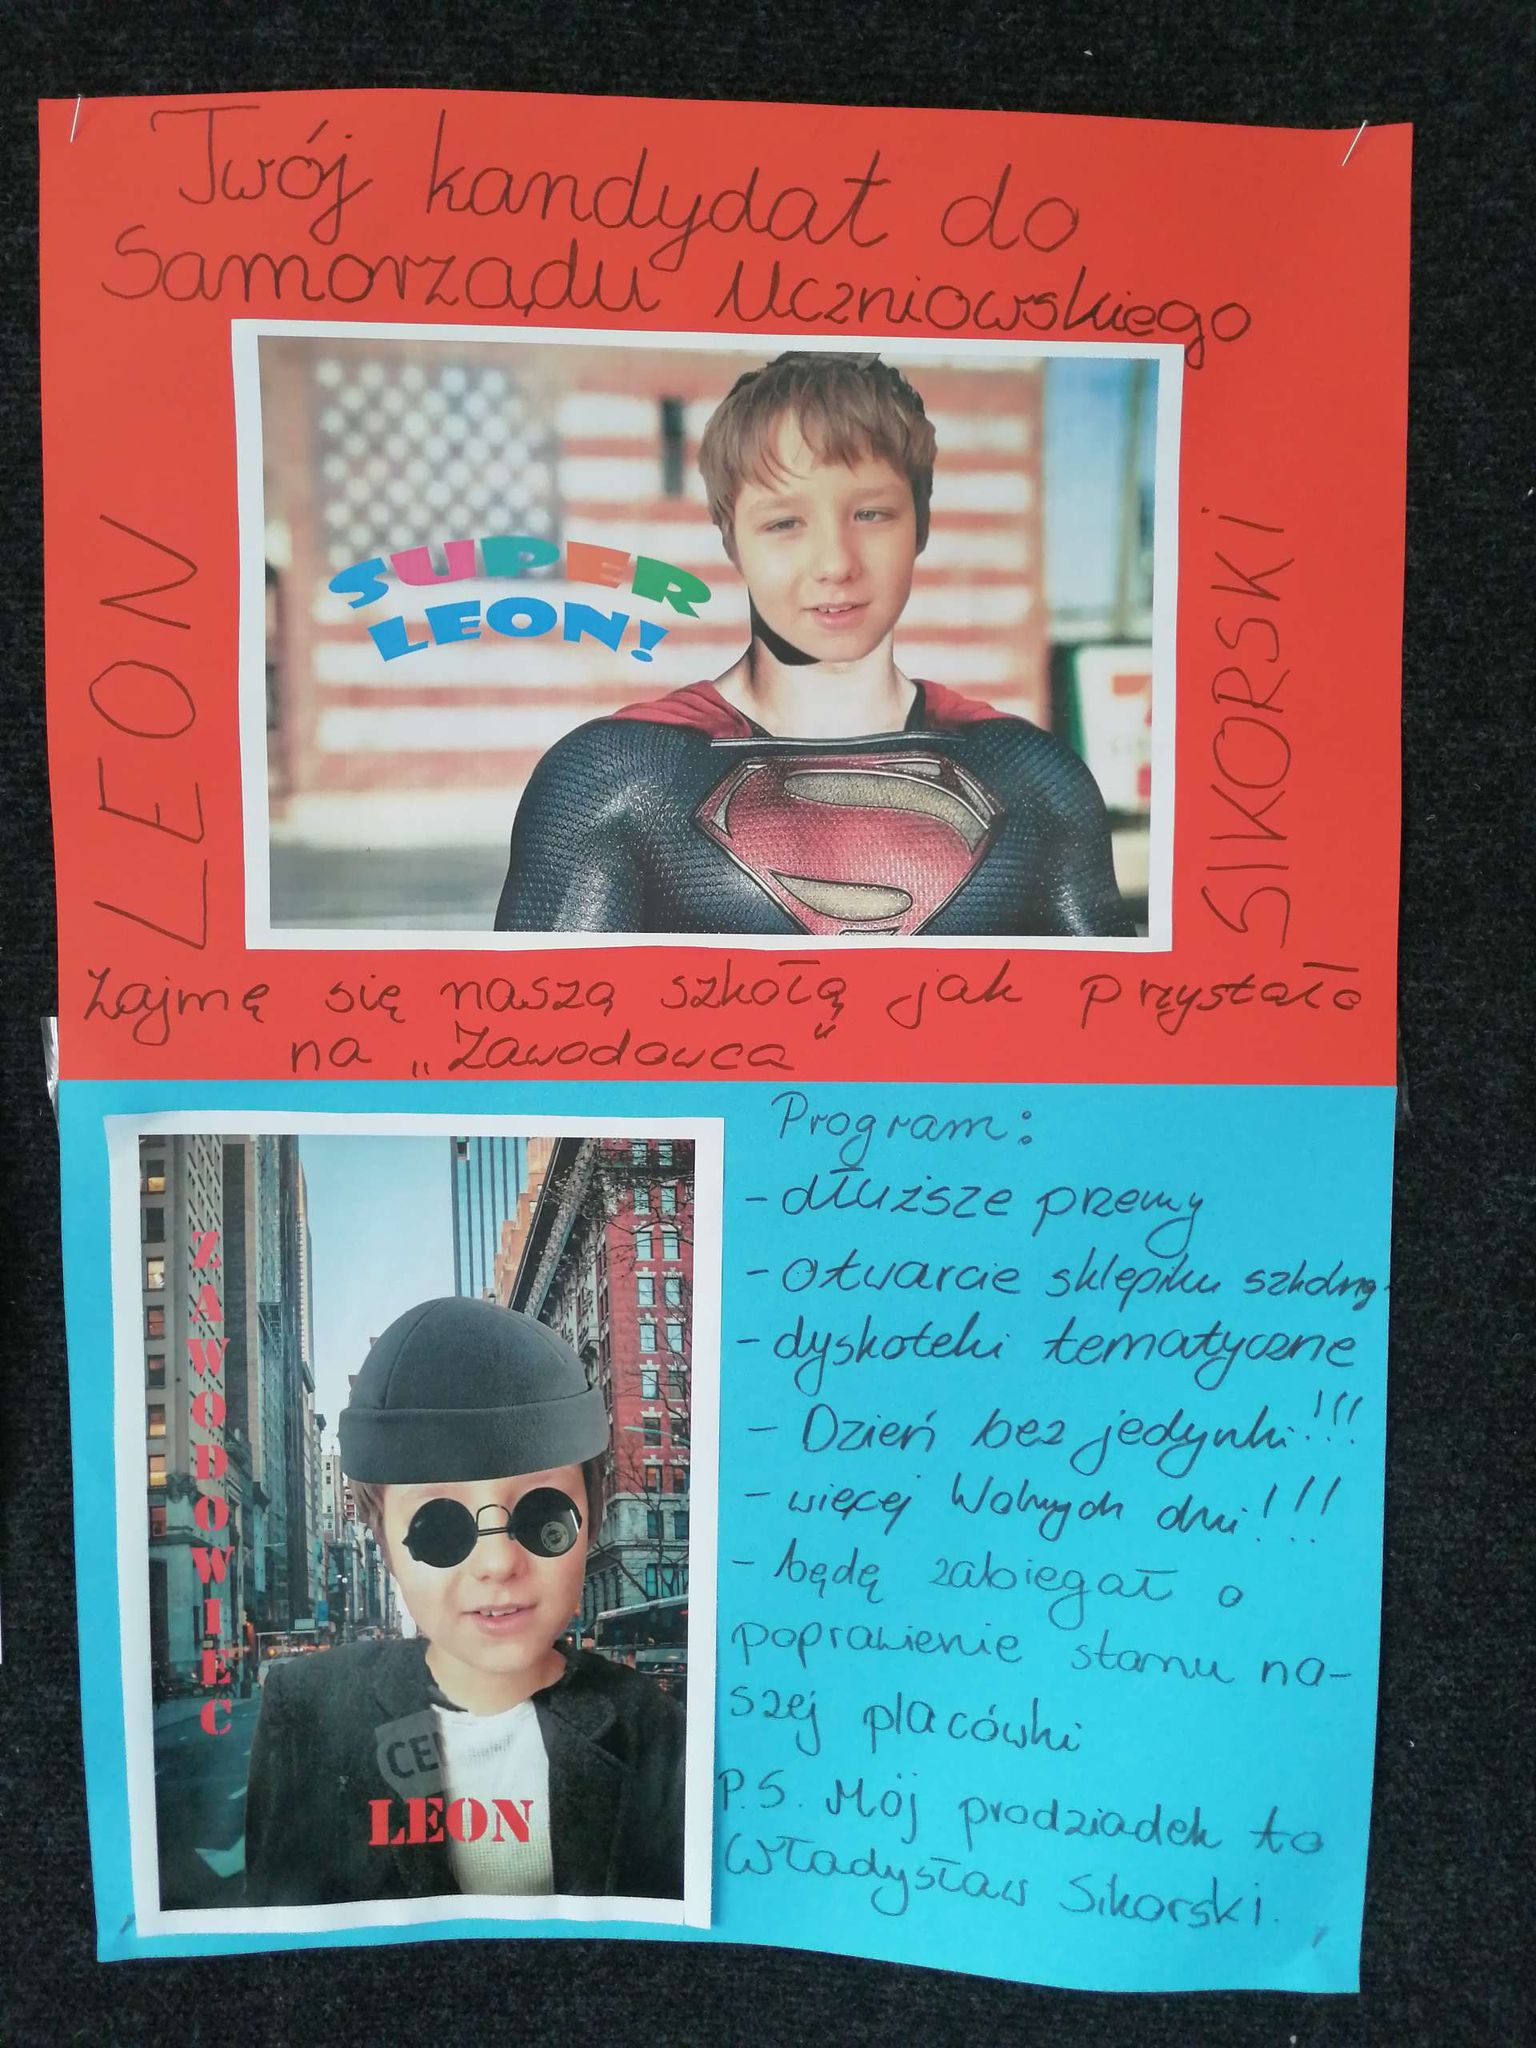 Twój kandydat do
Samorządu Uczniowskiego
LEON
SUPER
LEON!
SIKORSKI
Zajmę się naszą szkołą jak przystało
na „Zawodowca"
ZAWODOWIEC
CEN
LEON
Program:
- dłuższe przerwy
- otwarcie sklepiku szkolnego
- dyskoteki tematyczne
- Dzień bez jedynki!!!
- więcej wolnych dni!!!
- będę zabiegał o
poprawienie stanu na-
szej placówki
P.S. Mój pradziadek to
Władysław Sikorski.